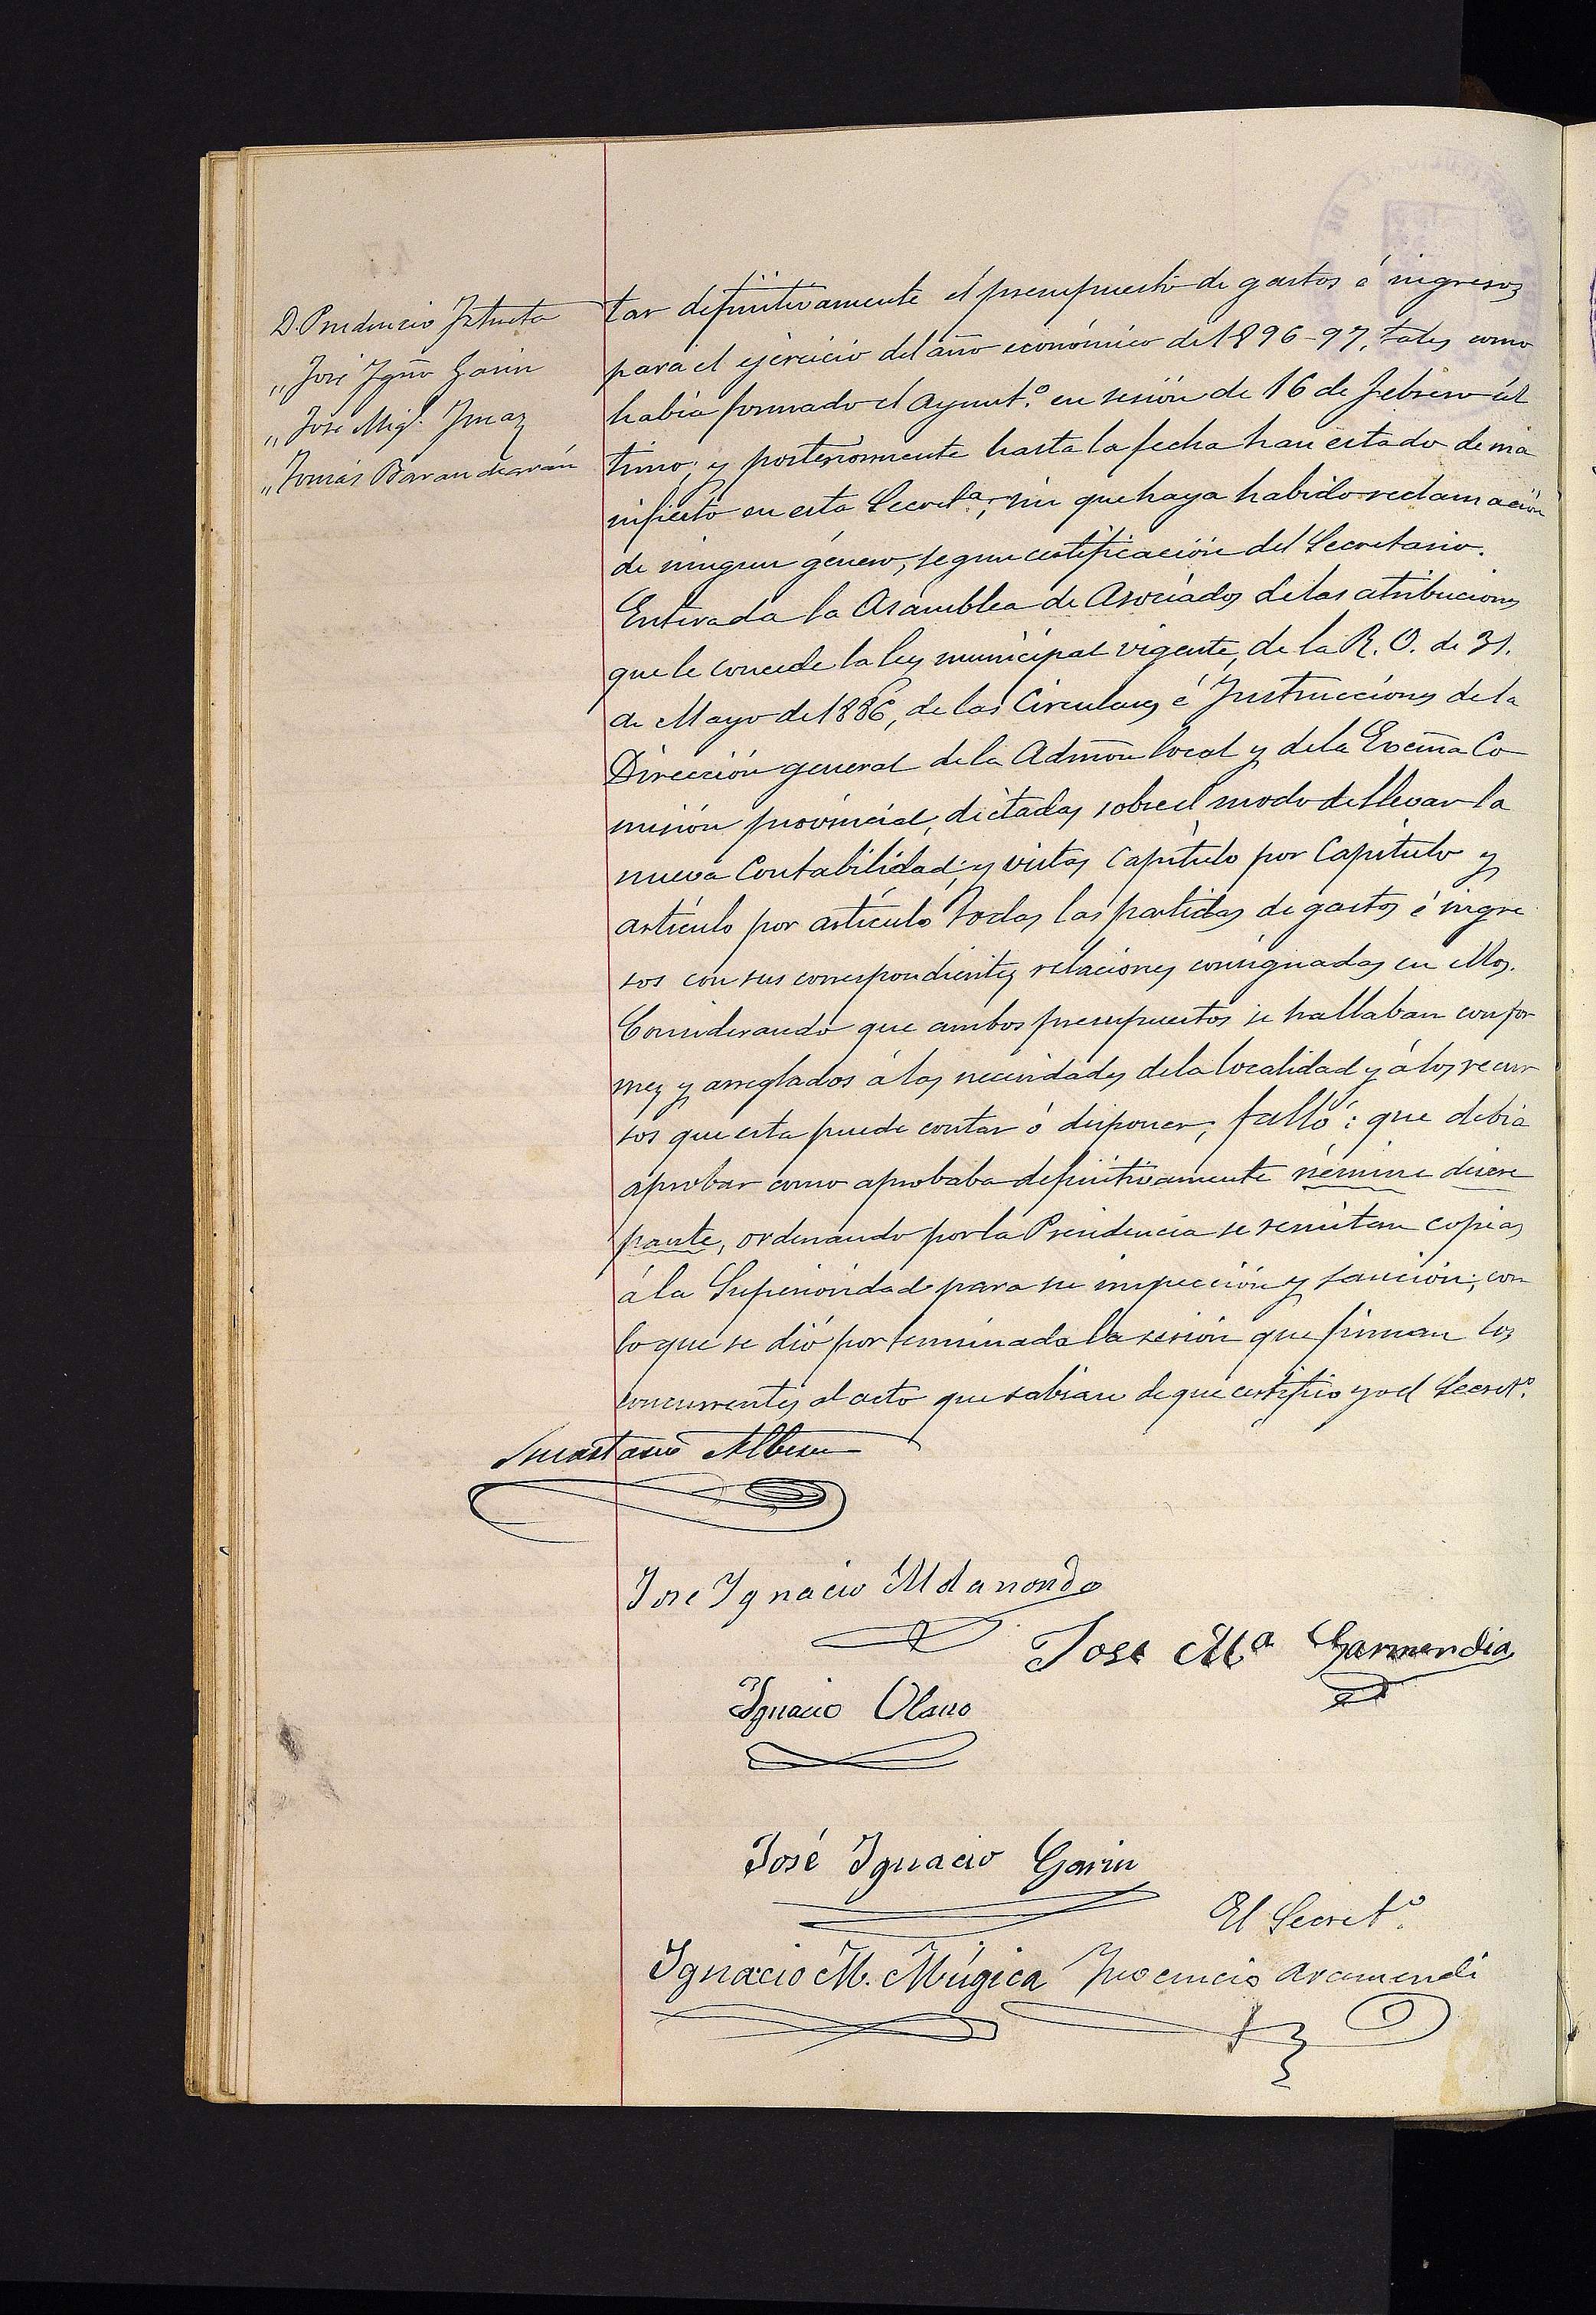 D. Prudencio Iztueta
„ José Igño Garin
„ José Migl. Imaz
„ Tomás Barandiarán
tar definitivamente el presupuesto de gastos é ingresos
para el ejercicio del año económico de 1896-97, tales como
había formado el Ayunt.º en sesión de 16 de Febrero úl
timo; y posteriormente hasta la fecha han estado de ma
nifiesto en esta Secret.ª, sin que haya habido reclamación
de ningun género, segun certificación del Secretario.
Enterada la Asamblea de Asociados de las atribuciones
que le concede la ley municipal vigente, de la R. O. de 31.
de Mayo de 1886, de las Circulares é Instrucciones de la
Dirección general de la Admón local y de la Excma Co
misión provincial, dictadas sobre el modo de llevar la
nueva Contabilidad; y vistas Capítulo por Capítulo y
artículo por artículo todas las partidas de gastos é ingre
sos con sus correspondientes relaciones consignadas en ellos.
Considerando que ambos presupuestos se hallaban confor
mes y arreglados á las necesidades de la localidad y á los recur
sos que esta puede contar ó disponer, falló: que debia
aprobar como aprobaba definitivamente némine discre
pante, ordenando por la Presidencia se remitan copias
á la Superioridad para su inspección y sanción; con
lo que se dió por terminada la sesión que firman los
concurrentes al acto que sabian de que certifico yo el Secret.º
Anastasio Alberu
Jose Ignacio Aldanondo
Jose Mª Garmendia
Ignacio Olano
José Ignacio Garin
El Secret.º
Ignacio M. Múgica Inocencio Aramendi